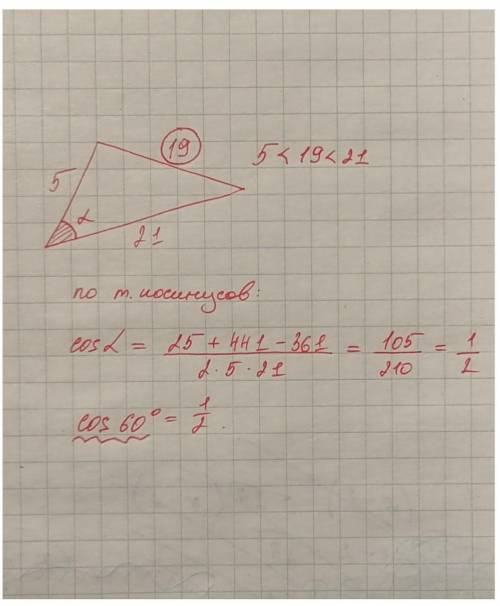 19
5 < 19 < 21
5
α
21
по т. косинусов:
cos α = (25 + 441 − 361) / (2 · 5 · 21) = 105/210 = 1/2
cos 60° = 1/2.